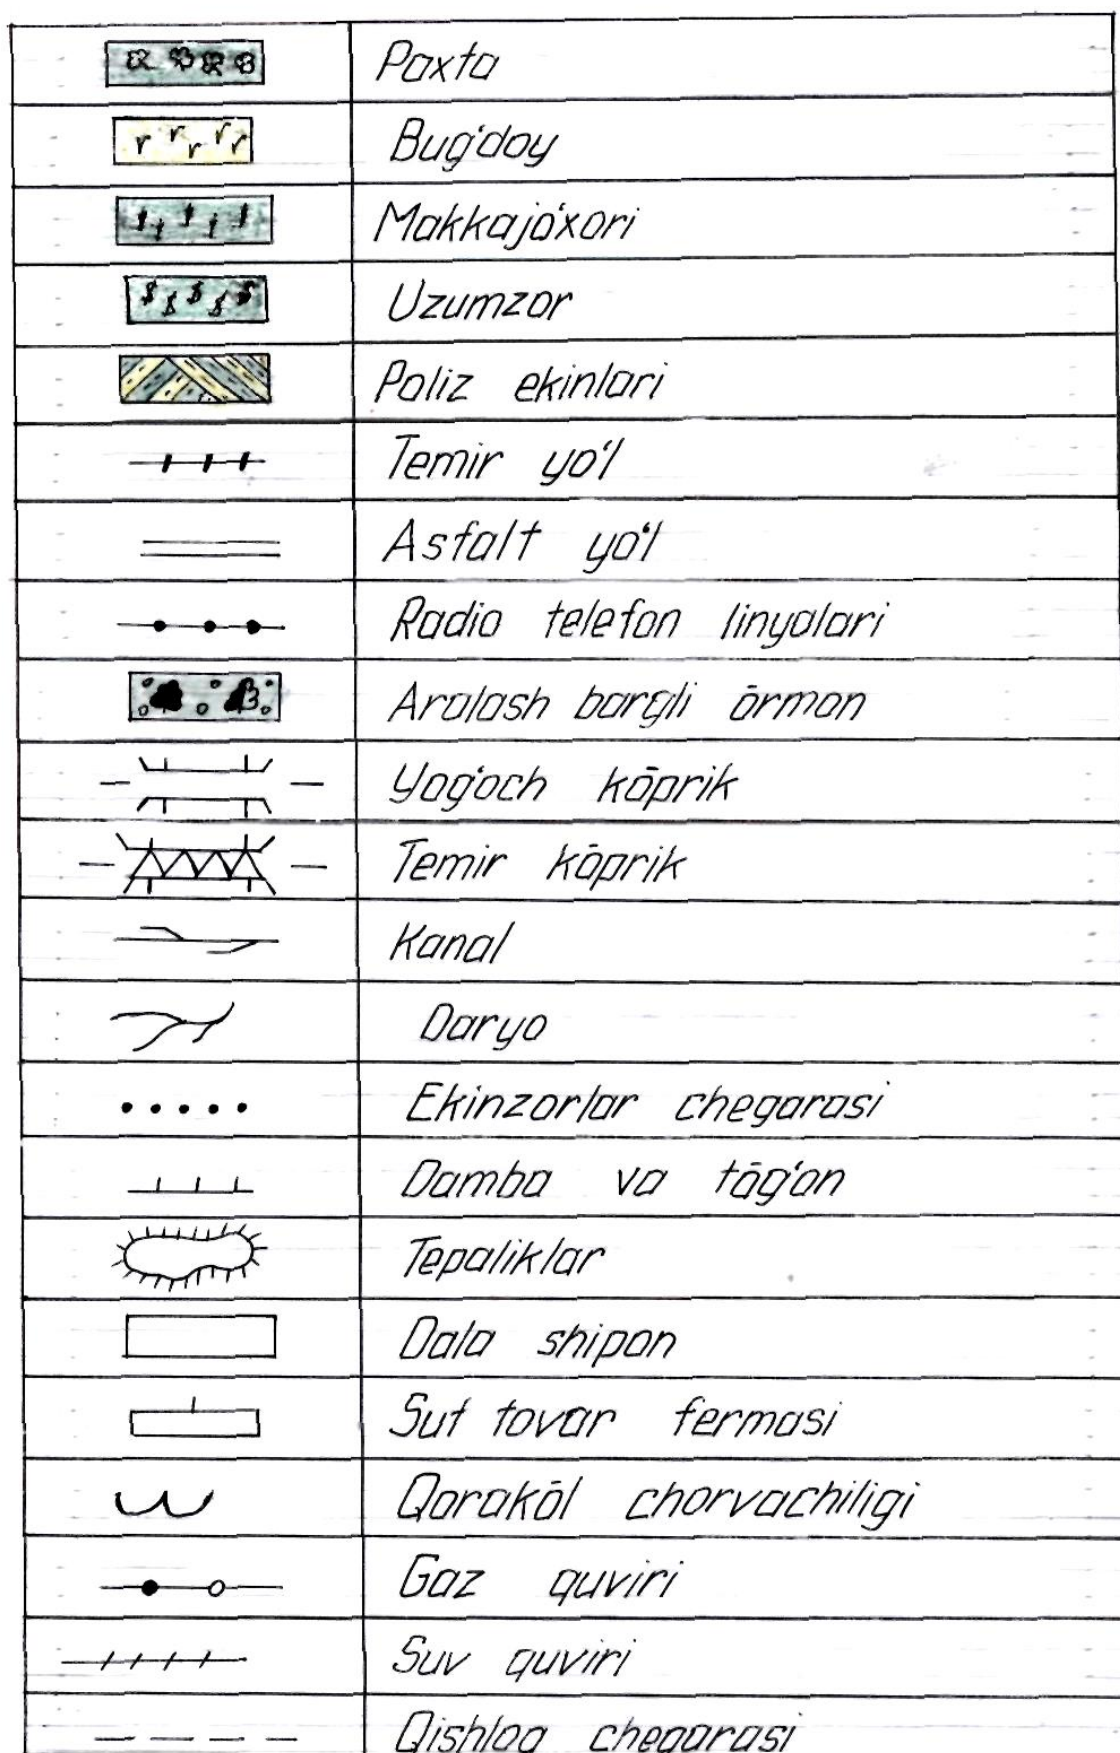 Paxta
Bug'doy
Makkajo'xori
Uzumzor
Poliz ekinlari
Temir yo'l
Asfalt yo'l
Radio telefon linyalari
Aralash bargli ōrmon
Yog'och kōprik
Temir kōprik
Kanal
Daryo
Ekinzorlar chegarasi
Damba va tōg'on
Tepaliklar
Dala shipon
Sut tovar fermasi
Qorakōl chorvachiligi
Gaz quviri
Suv quviri
Qishloq chegarasi